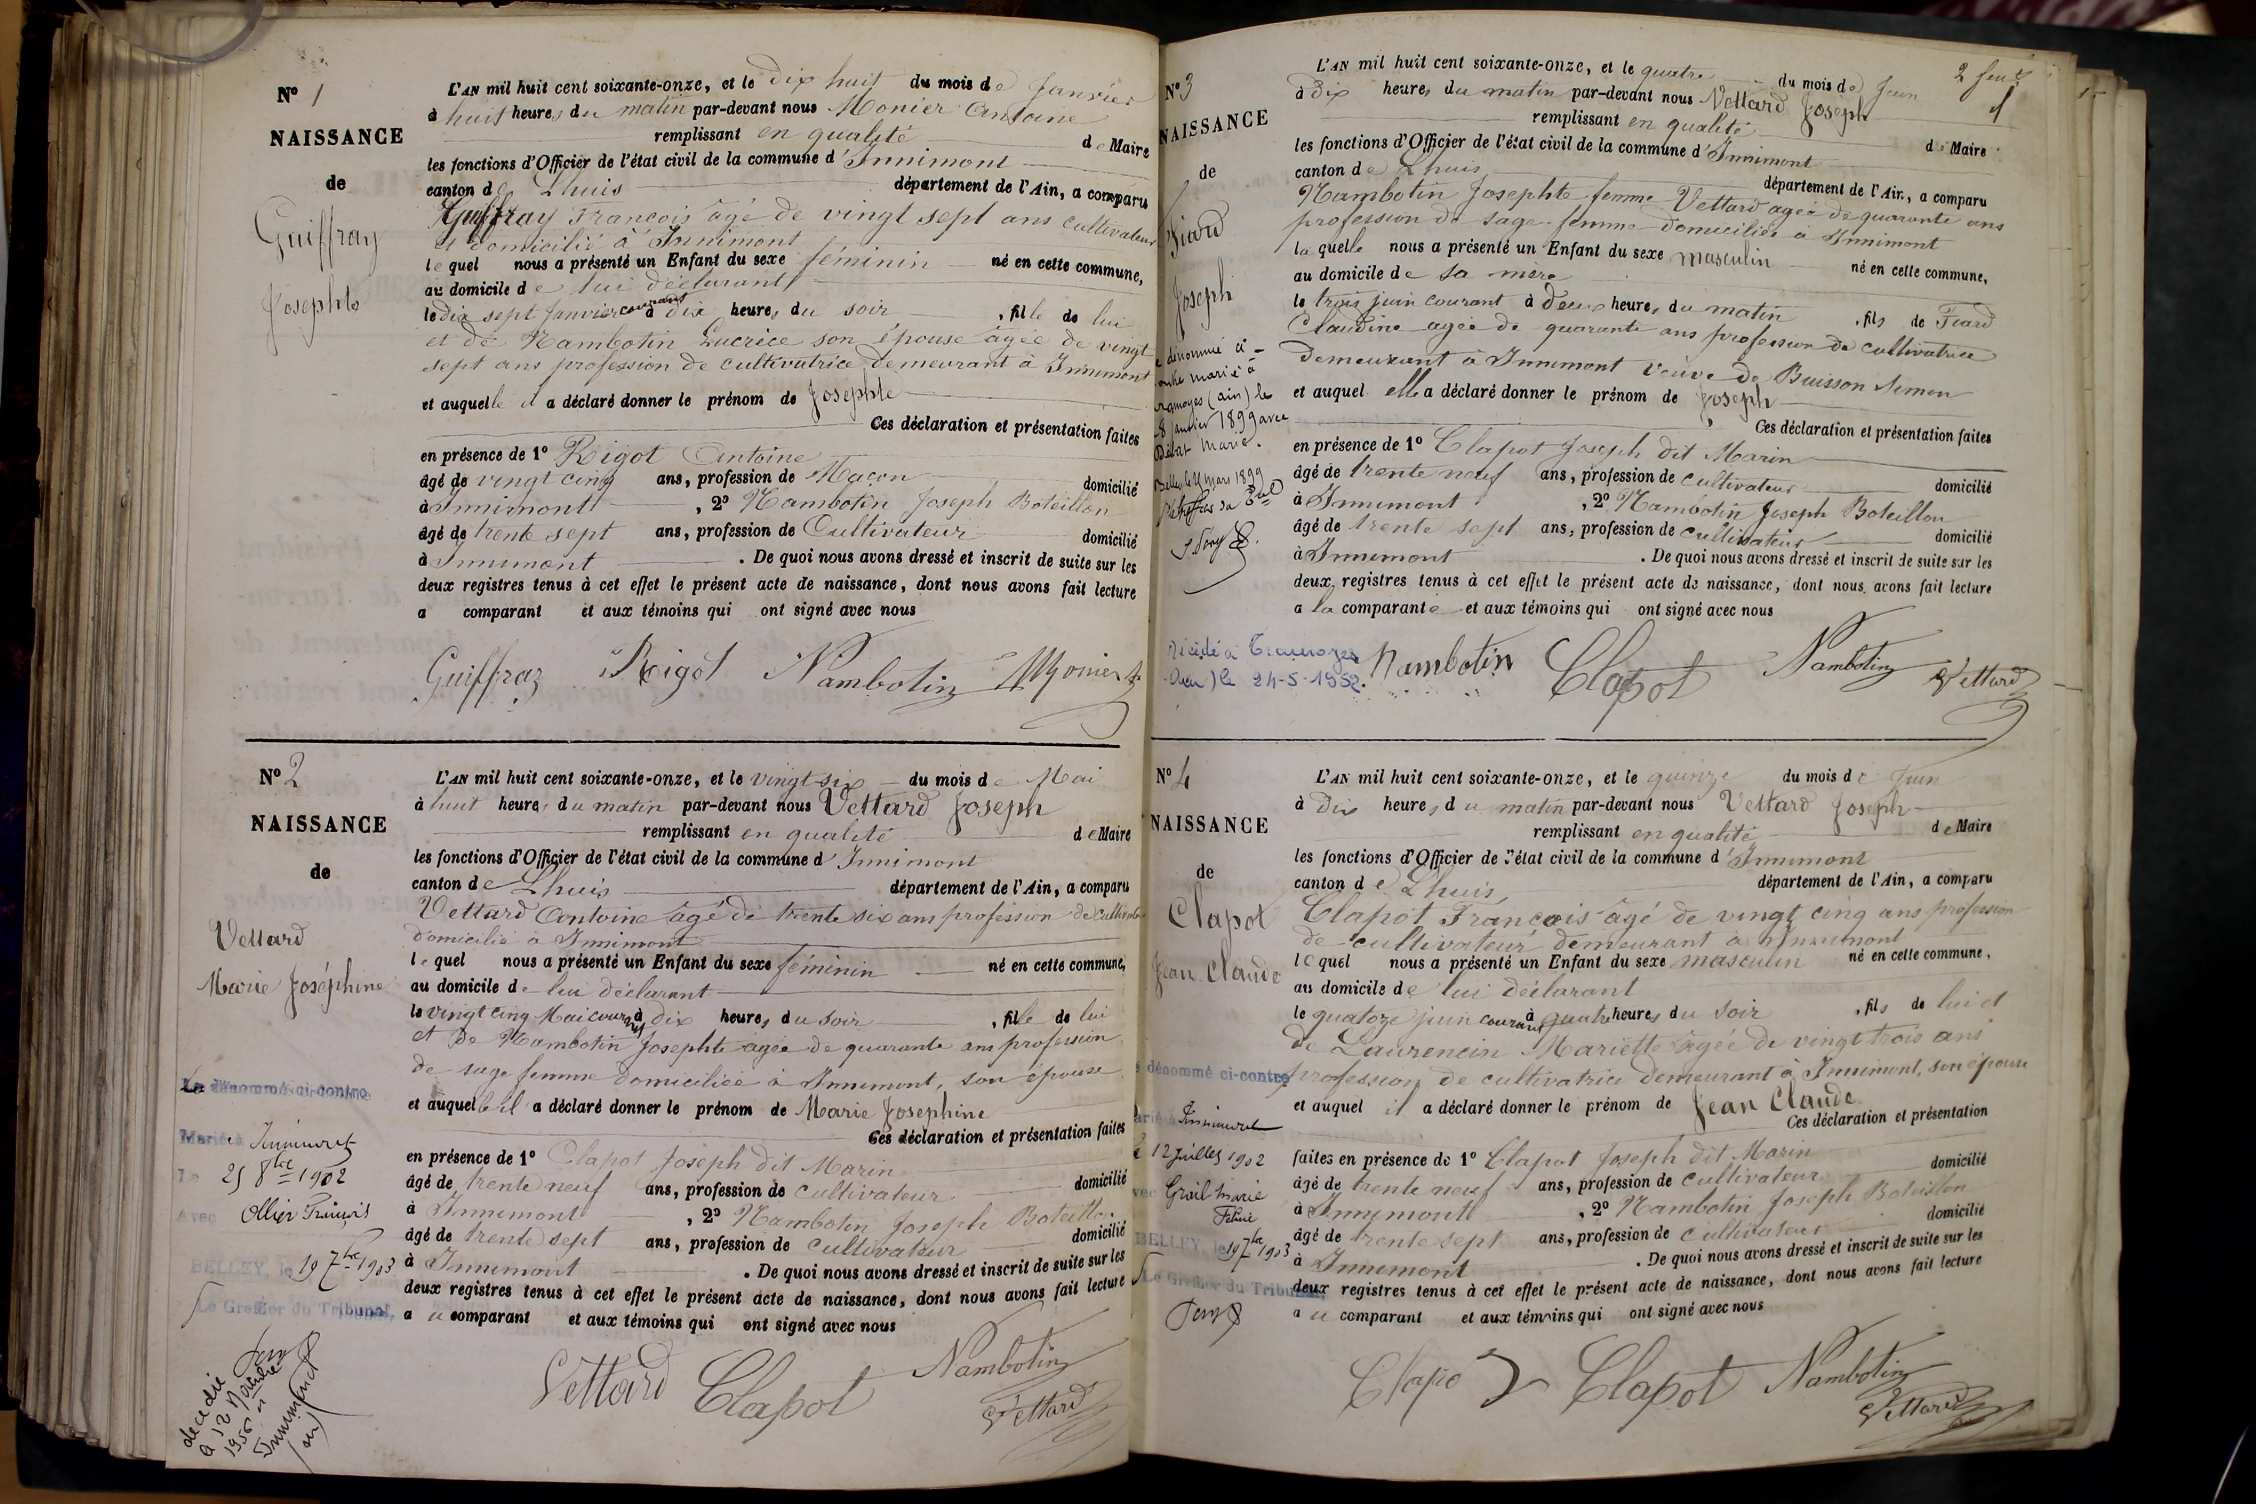 Nº 1
NAISSANCE
de
Guiffray
Josephte
L'AN mil huit cent soixante-onze, et le dix huit du mois de Janvier
à huit heures du matin par-devant nous Monier Antoine
remplissant en qualité de Maire
les fonctions d'Officier de l'état civil de la commune d'Innimont
canton de Lhuis département de l'Ain, a comparu
Guiffray François âgé de vingt sept ans cultivateur
et domicilié à Innimont
lequel nous a présenté un Enfant du sexe féminin né en cette commune,
au domicile de lui déclarant
le dix sept Janvier courant à dix heures du soir, fille de lui
et de Nambotin Lucrèce son épouse âgée de vingt
sept ans profession de cultivatrice demeurant à Innimont
et auquelle il a déclaré donner le prénom de Josephte
Ces déclaration et présentation faites
en présence de 1º Rigot Antoine
âgé de vingt cinq ans, profession de Maçon domicilié
à Innimont, 2º Nambotin Joseph Boteillon
âgé de trente sept ans, profession de Cultivateur domicilié
à Innimont. De quoi nous avons dressé et inscrit de suite sur les
deux registres tenus à cet effet le présent acte de naissance, dont nous avons fait lecture
a comparant et aux témoins qui ont signé avec nous
Guiffray Rigot Nambotin Monier
Nº 2
NAISSANCE
de
Vettard
Marie Joséphine
La dénommé ci-contre
Mariée à Innimont
Le 25 8bre 1902
Avec Ollier François
BELLEY, le 19 7bre 1903
Le Greffier du Tribunal,
décédée
à
Innimont
(ain)
L'AN mil huit cent soixante-onze, et le vingt six du mois de Mai
à huit heures du matin par-devant nous Vettard Joseph
remplissant en qualité de Maire
les fonctions d'Officier de l'état civil de la commune d'Innimont
canton de Lhuis département de l'Ain, a comparu
Vettard Antoine âgé de trente six ans profession de cultivateur
domicilié à Innimont
lequel nous a présenté un Enfant du sexe féminin né en cette commune,
au domicile de lui déclarant
le vingt cinq Mai courant à dix heures du soir, fille de lui
et de Nambotin Josephte agée de quarante ans profession
de sage femme domiciliée à Innimont, son épouse
et auquelle il a déclaré donner le prénom de Marie Josephine
Ces déclaration et présentation faites
en présence de 1º Clapot Joseph dit Marin
âgé de trente neuf ans, profession de cultivateur domicilié
à Innimont, 2º Nambotin Joseph Boteillon
âgé de trente sept ans, profession de cultivateur domicilié
à Innimont. De quoi nous avons dressé et inscrit de suite sur les
deux registres tenus à cet effet le présent acte de naissance, dont nous avons fait lecture
au comparant et aux témoins qui ont signé avec nous
Vettard Clapot Nambotin
Vettard
2 feuet
Nº 3
NAISSANCE
de
Fiard
Joseph
dénommé ci-
contre marié à
Tramoyes (ain) le
8 janvier 1899 avec
Débat Marie.
Belley le 21 mars 1899
Décédé à Tramoyes
(Ain) le 24-5-1952.
L'AN mil huit cent soixante-onze, et le quatre du mois de Juin
à Dix heures du matin par-devant nous Vettard Joseph
remplissant en qualité de Maire
les fonctions d'Officier de l'état civil de la commune d'Innimont
canton de Lhuis département de l'Ain, a comparu
Nambotin Josephte femme Vettard agée de quarante ans
profession de sage-femme domiciliée à Innimont
laquelle nous a présenté un Enfant du sexe masculin né en cette commune,
au domicile de sa mère
le trois juin courant à Deux heures du matin, fils de Fiard
Claudine agée de quarante ans profession de cultivatrice
demeurant à Innimont veuve de Buisson Simon
et auquel elle a déclaré donner le prénom de Joseph
Ces déclaration et présentation faites
en présence de 1º Clapot Joseph dit Marin
âgé de trente neuf ans, profession de cultivateur domicilié
à Innimont, 2º Nambotin Joseph Boteillon
âgé de trente sept ans, profession de cultivateur domicilié
à Innimont. De quoi nous avons dressé et inscrit de suite sur les
deux registres tenus à cet effet le présent acte de naissance, dont nous avons fait lecture
a la comparante et aux témoins qui ont signé avec nous
Nambotin Clapot Nambotin Vettard
Nº 4
NAISSANCE
de
Clapot
Jean Claude
dénommé ci-contre
Marié à Innimont
le 12 Juillet 1902
avec Grail Marie
BELLEY, le 19 7bre 1903
Le Greffier du Tribunal,
L'AN mil huit cent soixante-onze, et le quinze du mois de Juin
à Dix heures du matin par-devant nous Vettard Joseph
remplissant en qualité de Maire
les fonctions d'Officier de l'état civil de la commune d'Innimont
canton de Lhuis, département de l'Ain, a comparu
Clapot François âgé de vingt cinq ans profession
de cultivateur demeurant à Innimont
lequel nous a présenté un Enfant du sexe masculin né en cette commune,
au domicile de lui déclarant
le quatoze juin courant à quatre heures du soir, fils de lui et
de Laurencin Mariette agée de vingt trois ans
profession de cultivatrice demeurant à Innimont, son épouse
et auquel il a déclaré donner le prénom de Jean Claude
Ces déclaration et présentation
faites en présence de 1º Clapot Joseph dit Marin
âgé de trente neuf ans, profession de cultivateur domicilié
à Innimont, 2º Nambotin Joseph Boteillon
âgé de trente sept ans, profession de cultivateur domicilié
à Innimont. De quoi nous avons dressé et inscrit de suite sur les
deux registres tenus à cet effet le présent acte de naissance, dont nous avons fait lecture
au comparant et aux témoins qui ont signé avec nous
Clapo Clapot Nambotin
Vettard